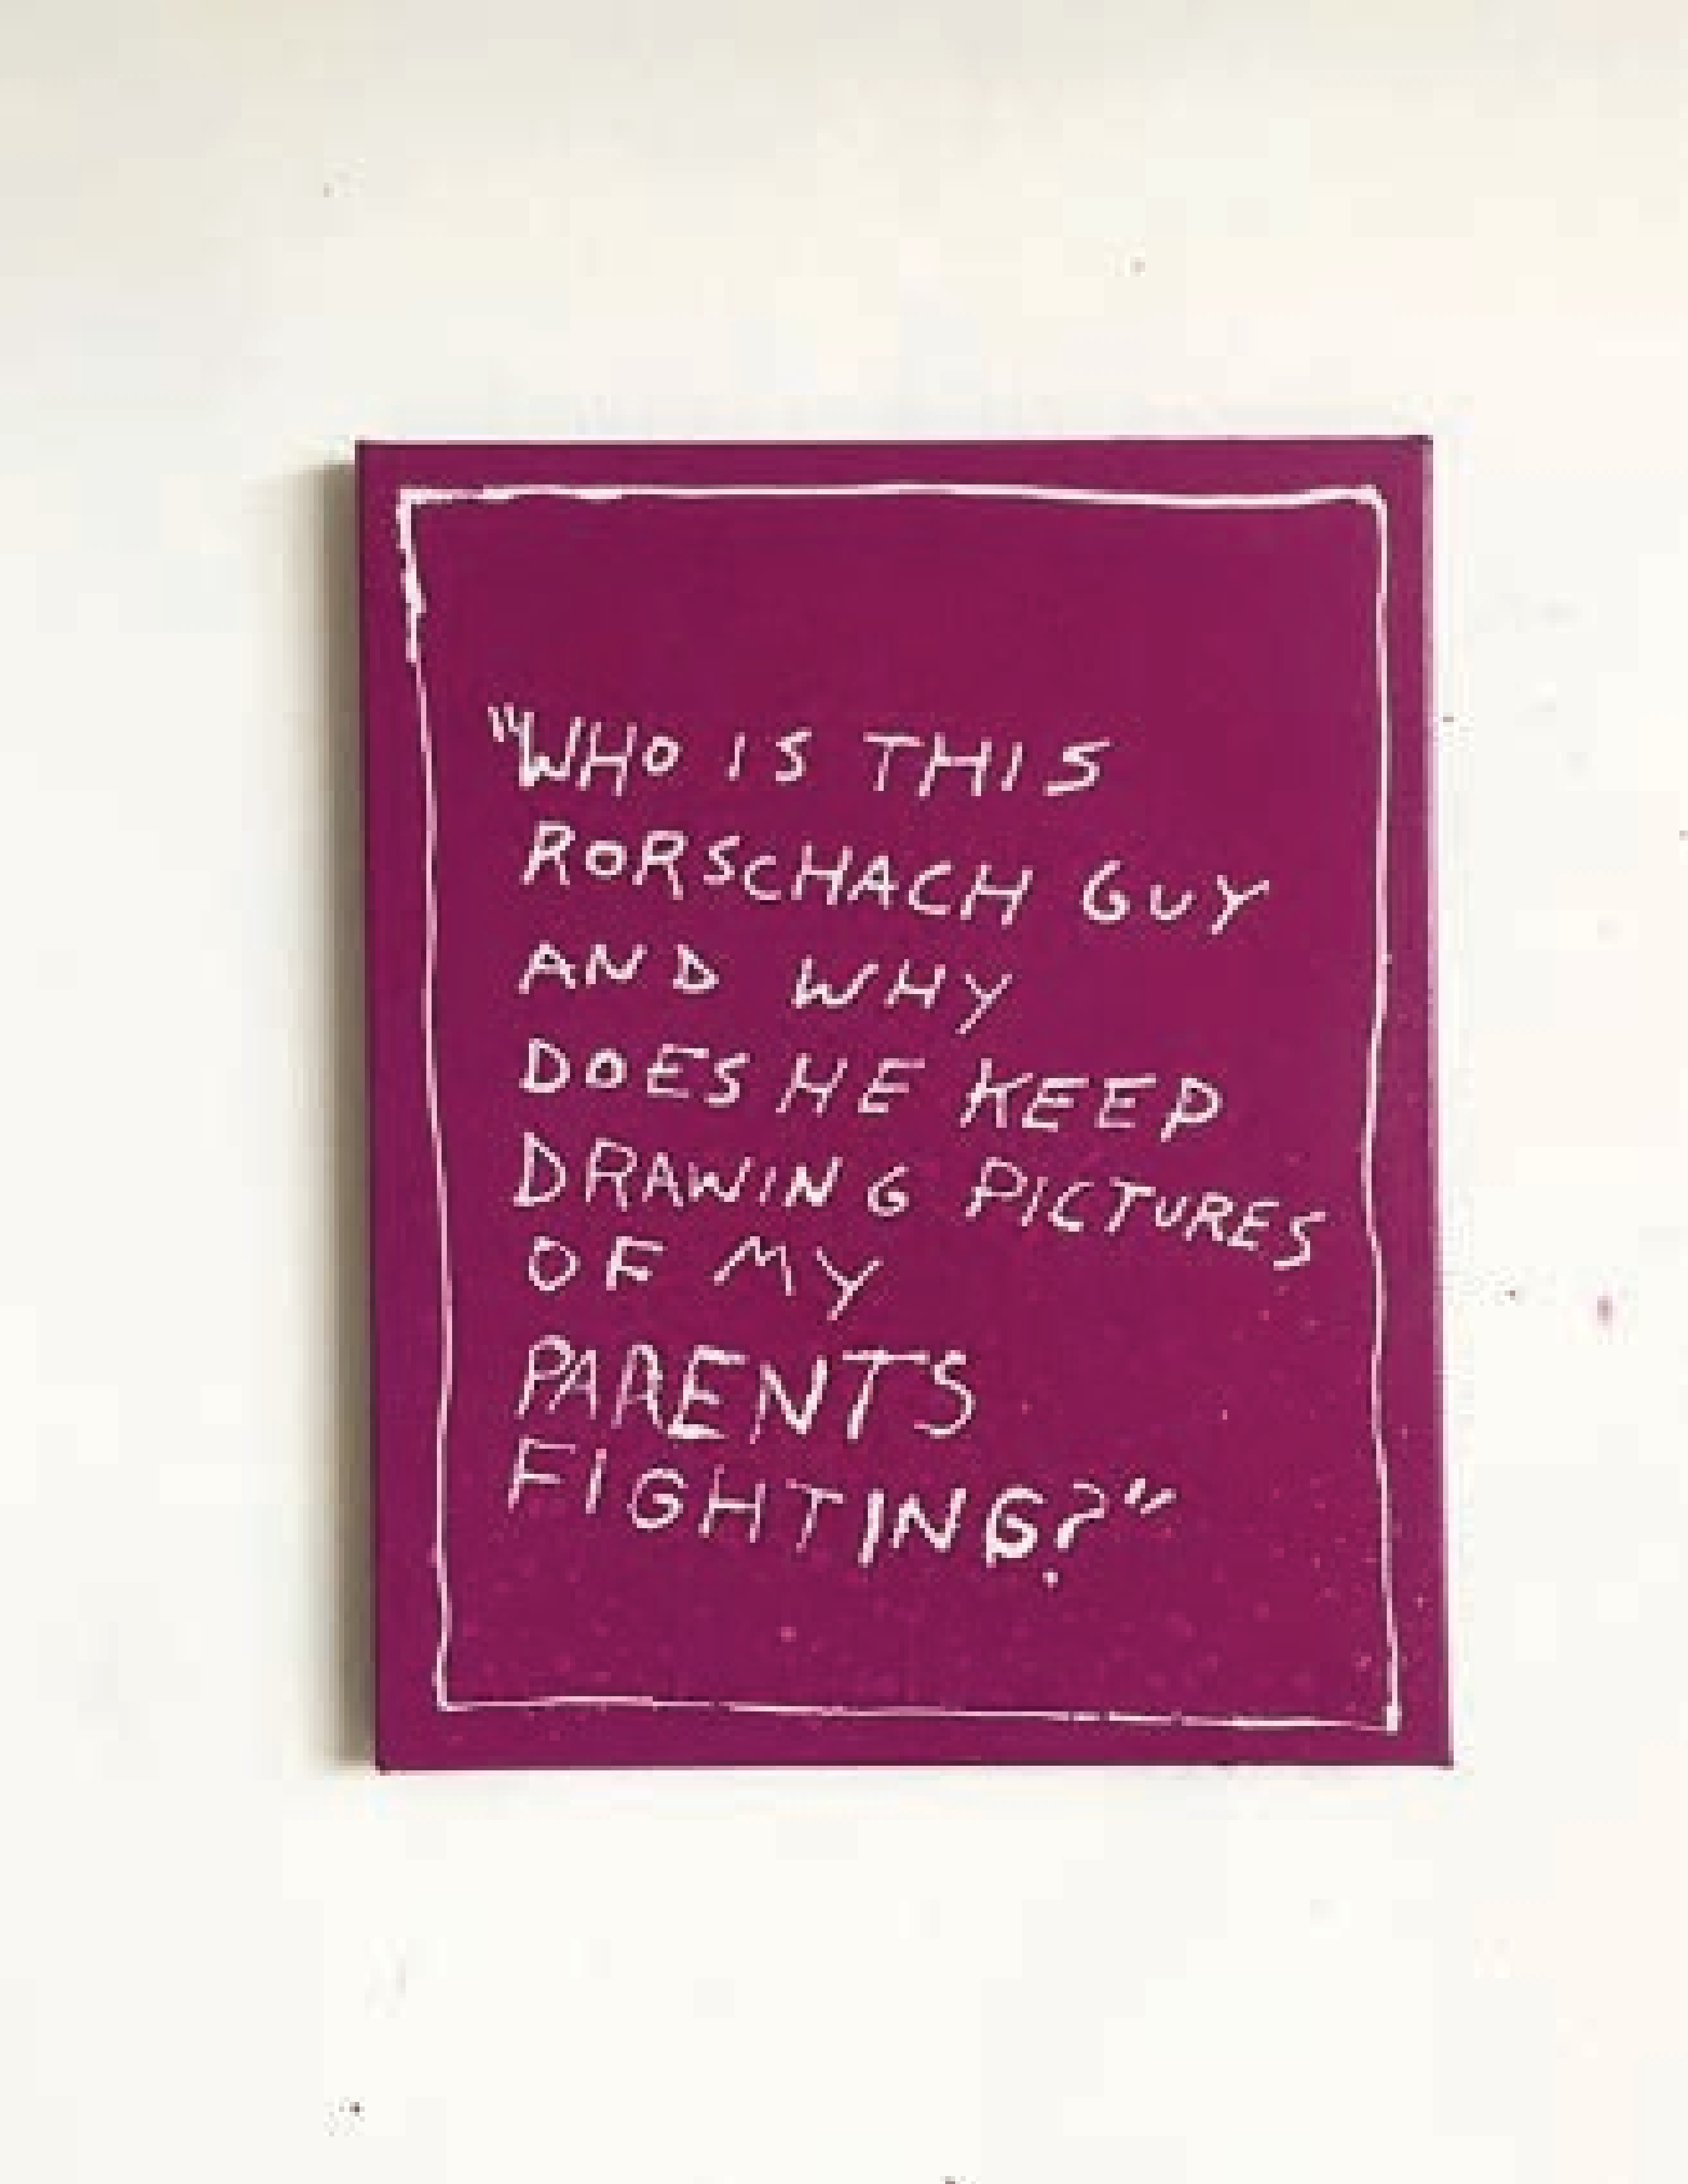 "WHO IS THIS
RORSCHACH GUY
AND WHY
DOES HE KEEP
DRAWING PICTURES
OF MY
PARENTS
FIGHTING?"